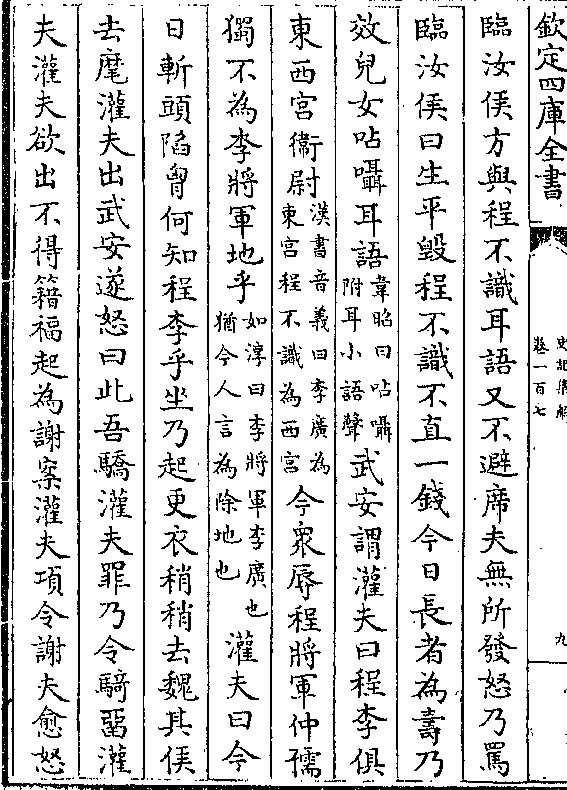 欽定四庫全書
史記集解
卷一百七
九
臨汝侯方與程不識耳語又不避席夫無所發怒乃罵
臨汝侯曰生平毀程不識不直一錢今日長者為壽乃
效兒女呫囁耳語韋昭曰呫囁附耳小語聲武安謂灌夫曰程李俱
東西宫衞尉漢書音義曰李廣為東宫程不識為西宫今衆辱程將軍仲孺
獨不為李將軍地乎如淳曰李將軍李廣也猶今人言為除地也灌夫曰今
日斬頭陷胷何知程李乎坐乃起更衣稍稍去魏其侯
去麾灌夫出武安遂怒曰此吾驕灌夫罪乃令騎畱灌
夫灌夫欲出不得籍福起為謝案灌夫項令謝夫愈怒